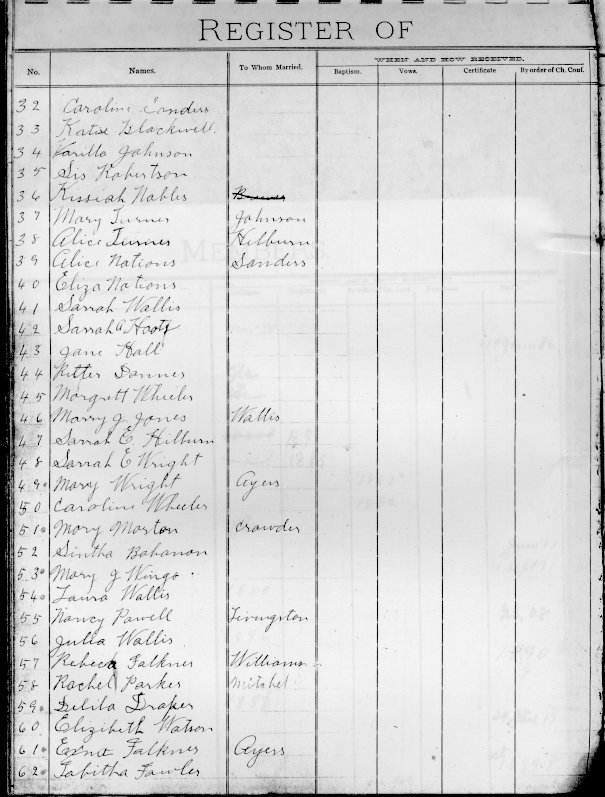 REGISTER OF
WHEN AND HOW RECEIVED.
No. Names. To Whom Married. Baptism. Vows. Certificate By order of Ch. Conf.
32 Caroline Sanders
33 Katie Blackwell
34 Varilla Johnson
35 Sis Robertson
36 Kissiah Nables
37 Mary Turner Johnson
38 Alice Turner Hilburn
39 Alice Nations Sanders
40 Eliza Nations
41 Sarrah Wallis
42 Sarrah A Hoots
43 Jane Hall
44 Ritter Danner
45 Margrett Wheeler
46 Marry J Jones Wallis
47 Sarrah E. Hilburn
48 Sarrah E Wright
49 Mary Wright Ayers
50 Caroline Wheeler
51 Mary Morton Crowder
52 Sintha Bohanon
53 Mary J Wingo
54 Laura Wallis
55 Nancy Powell Livingston
56 Julia Wallis
57 Rebeca Falkner Williams
58 Rachel Parker Mitchel
59 Delila Draper
60 Elizibeth Watson
61 Falkner Ayers
62 Tabitha Fowler